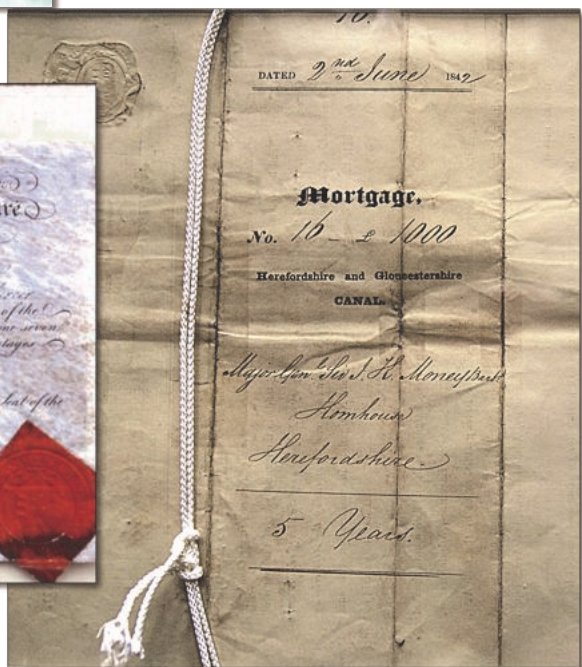 16.
DATED 2nd June 1842
Mortgage.
No. 16 - £ 1000
Herefordshire and Gloucestershire
CANAL.
Major Genl Sir J. K. Money Bart
Homhouse
Herefordshire
5 Years.
of the
seven
Seal of the